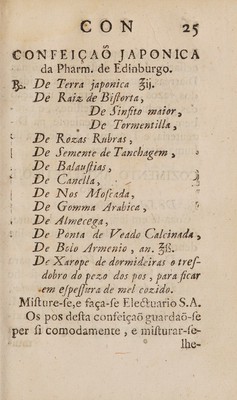 CON 25
CONFEIÇAÕ JAPONICA
da Pharm. de Edinburgo.
℞. De Terra japonica ℥ij.
De Raiz de Biſtorta,
De Sinfito maior,
De Tormentilla,
De Rozas Rubras,
De Semente de Tanchagem,
De Balauſtias,
De Canella,
De Nos Moſcada,
De Gomma Arabica,
De Almecega,
De Ponta de Veado Calcinada,
De Bolo Armenio, an. ℥ß.
De Xarope de dormideiras o treſ-
dobro do pezo dos pos, para ficar
em eſpeſſura de mel cozido.
Miſture-ſe, e faça-ſe Electuario S.A.
Os pos deſta confeiçaõ guardaõ-ſe
per ſi comodamente, e miſturar-ſe-
lhe-